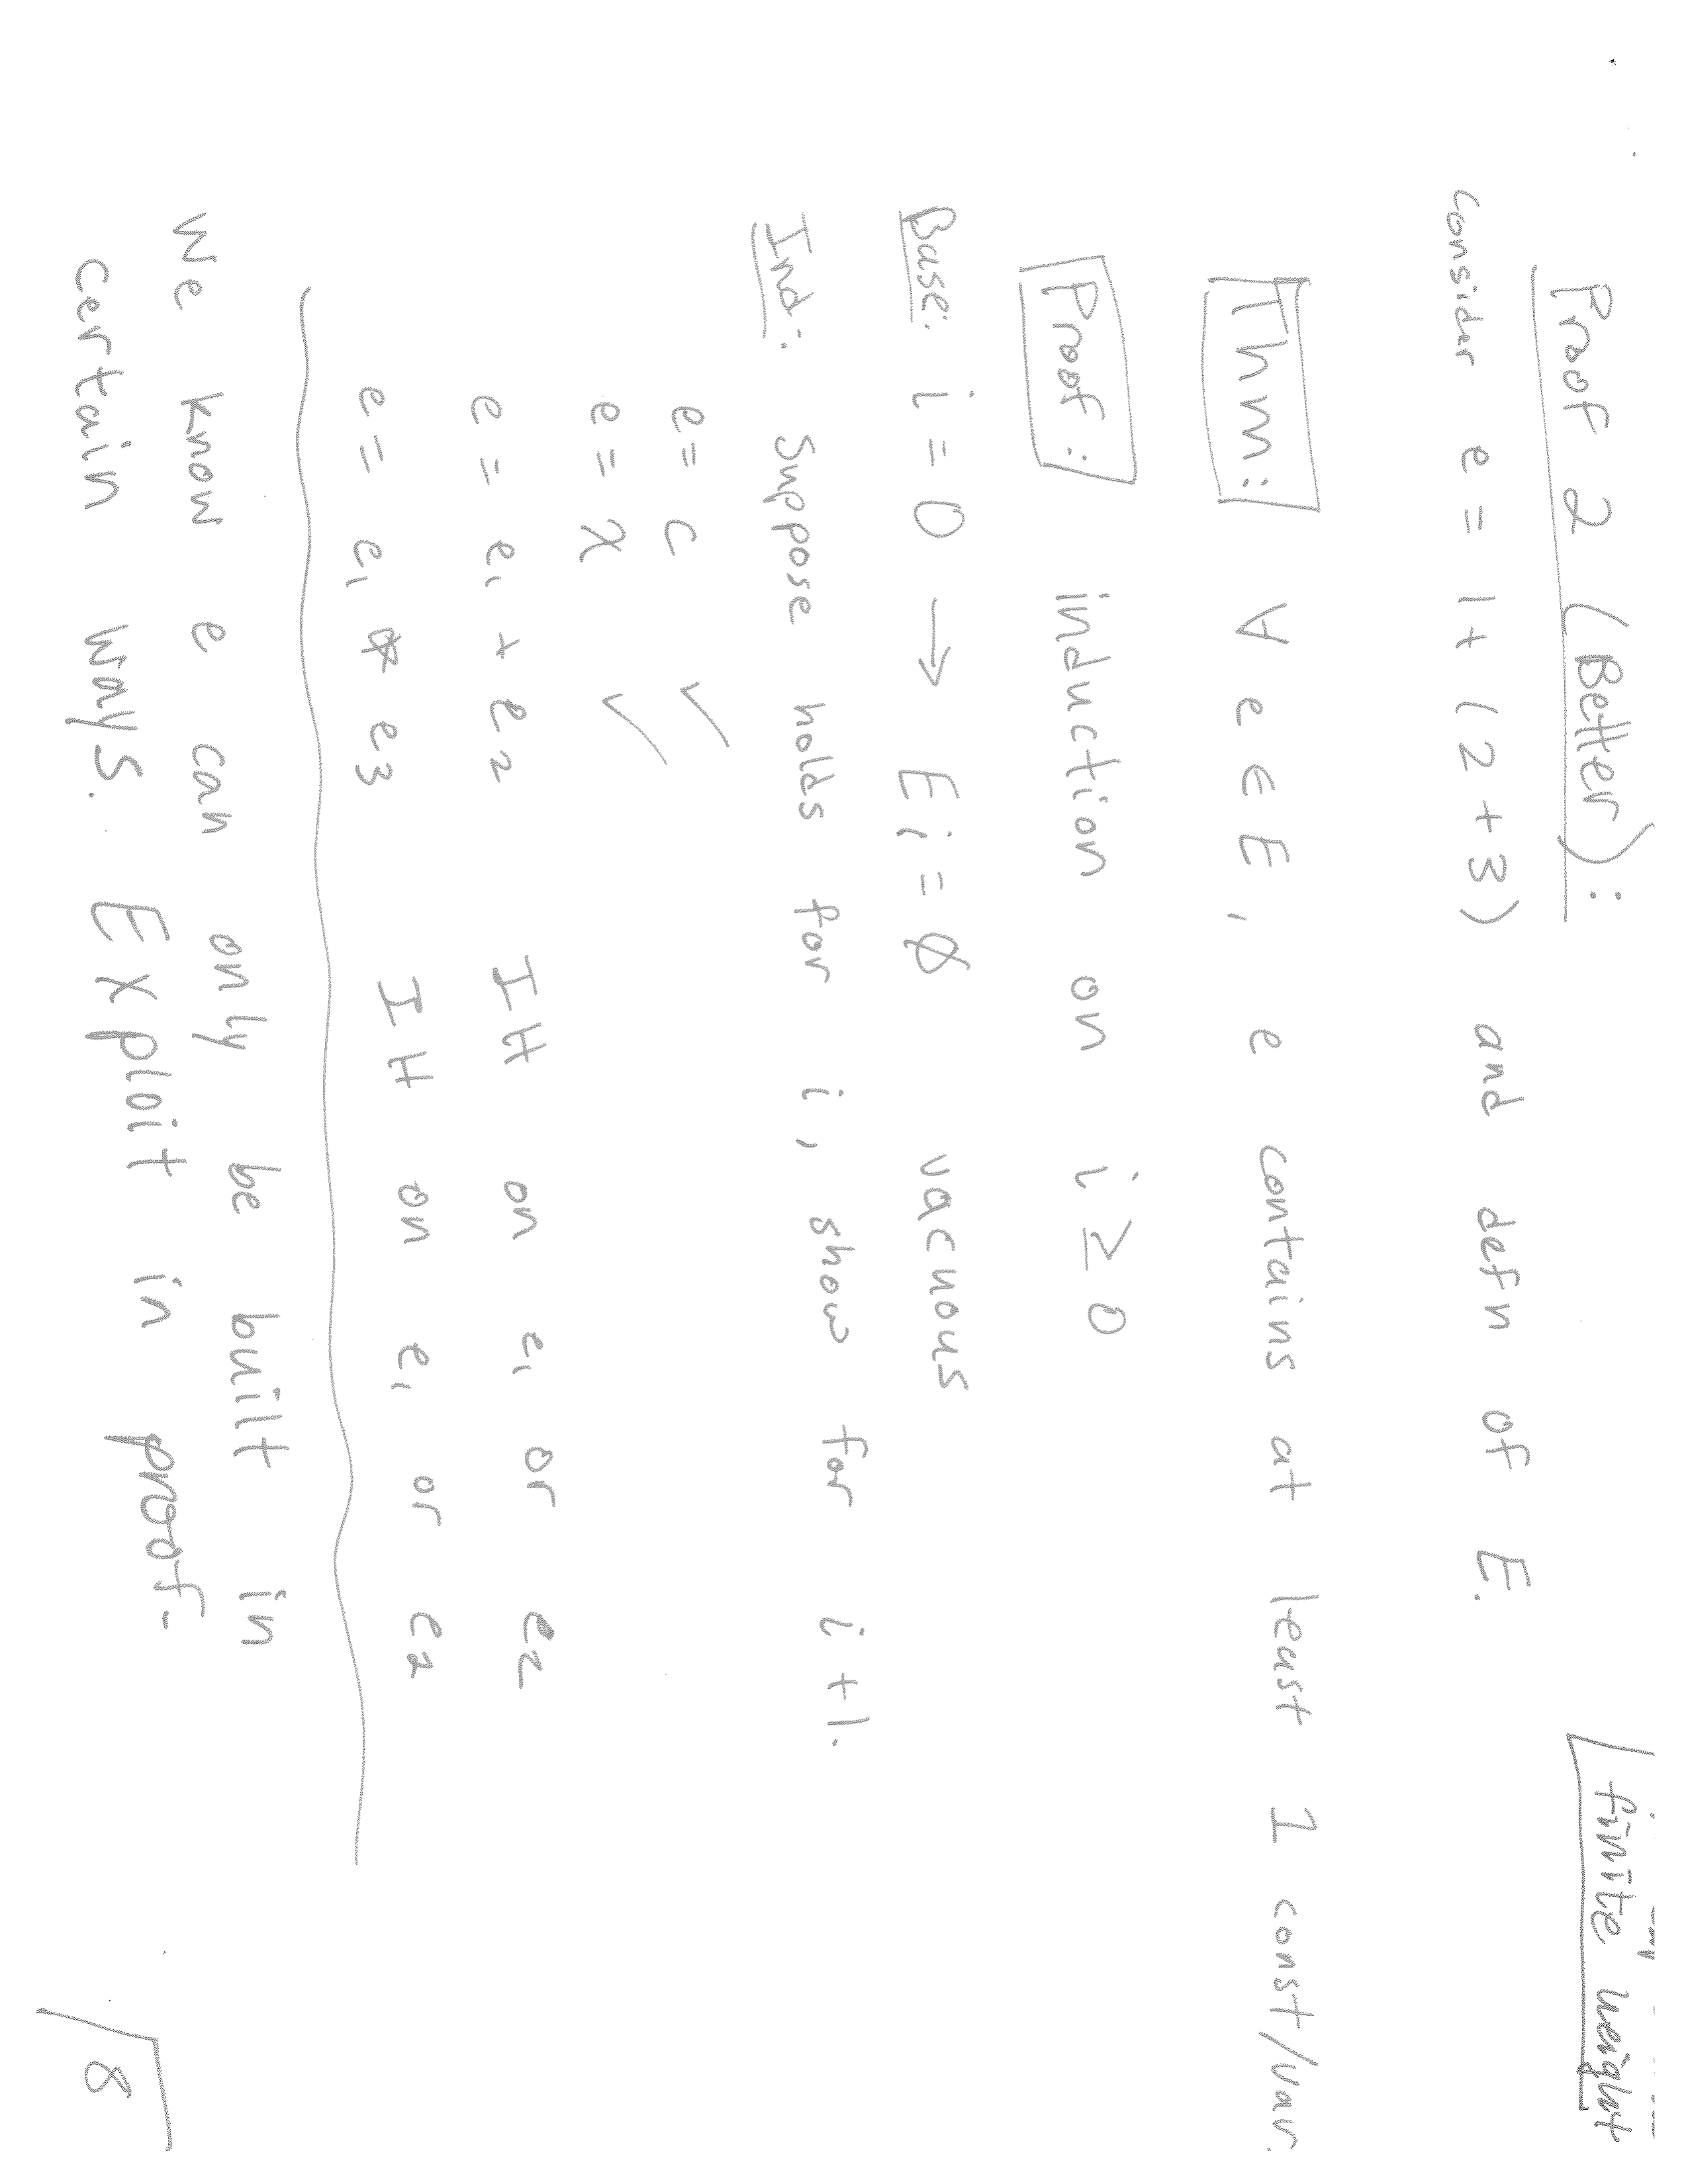 finite weight
Proof 2 (Better):
consider e = 1+ (2+3) and defn of E.
Thm: ∀ e ∈ E, e contains at least 1 const/var.
Proof: induction on i ≥ 0
Base: i = 0 → Ei = ∅ vacuous
Ind: Suppose holds for i, show for i+1.
e = c ✓
e = x ✓
e = e1 + e2 IH on e1 or e2
e = e1 * e3 IH on e1 or e2
We know e can only be built in
certain ways. Exploit in proof.
8